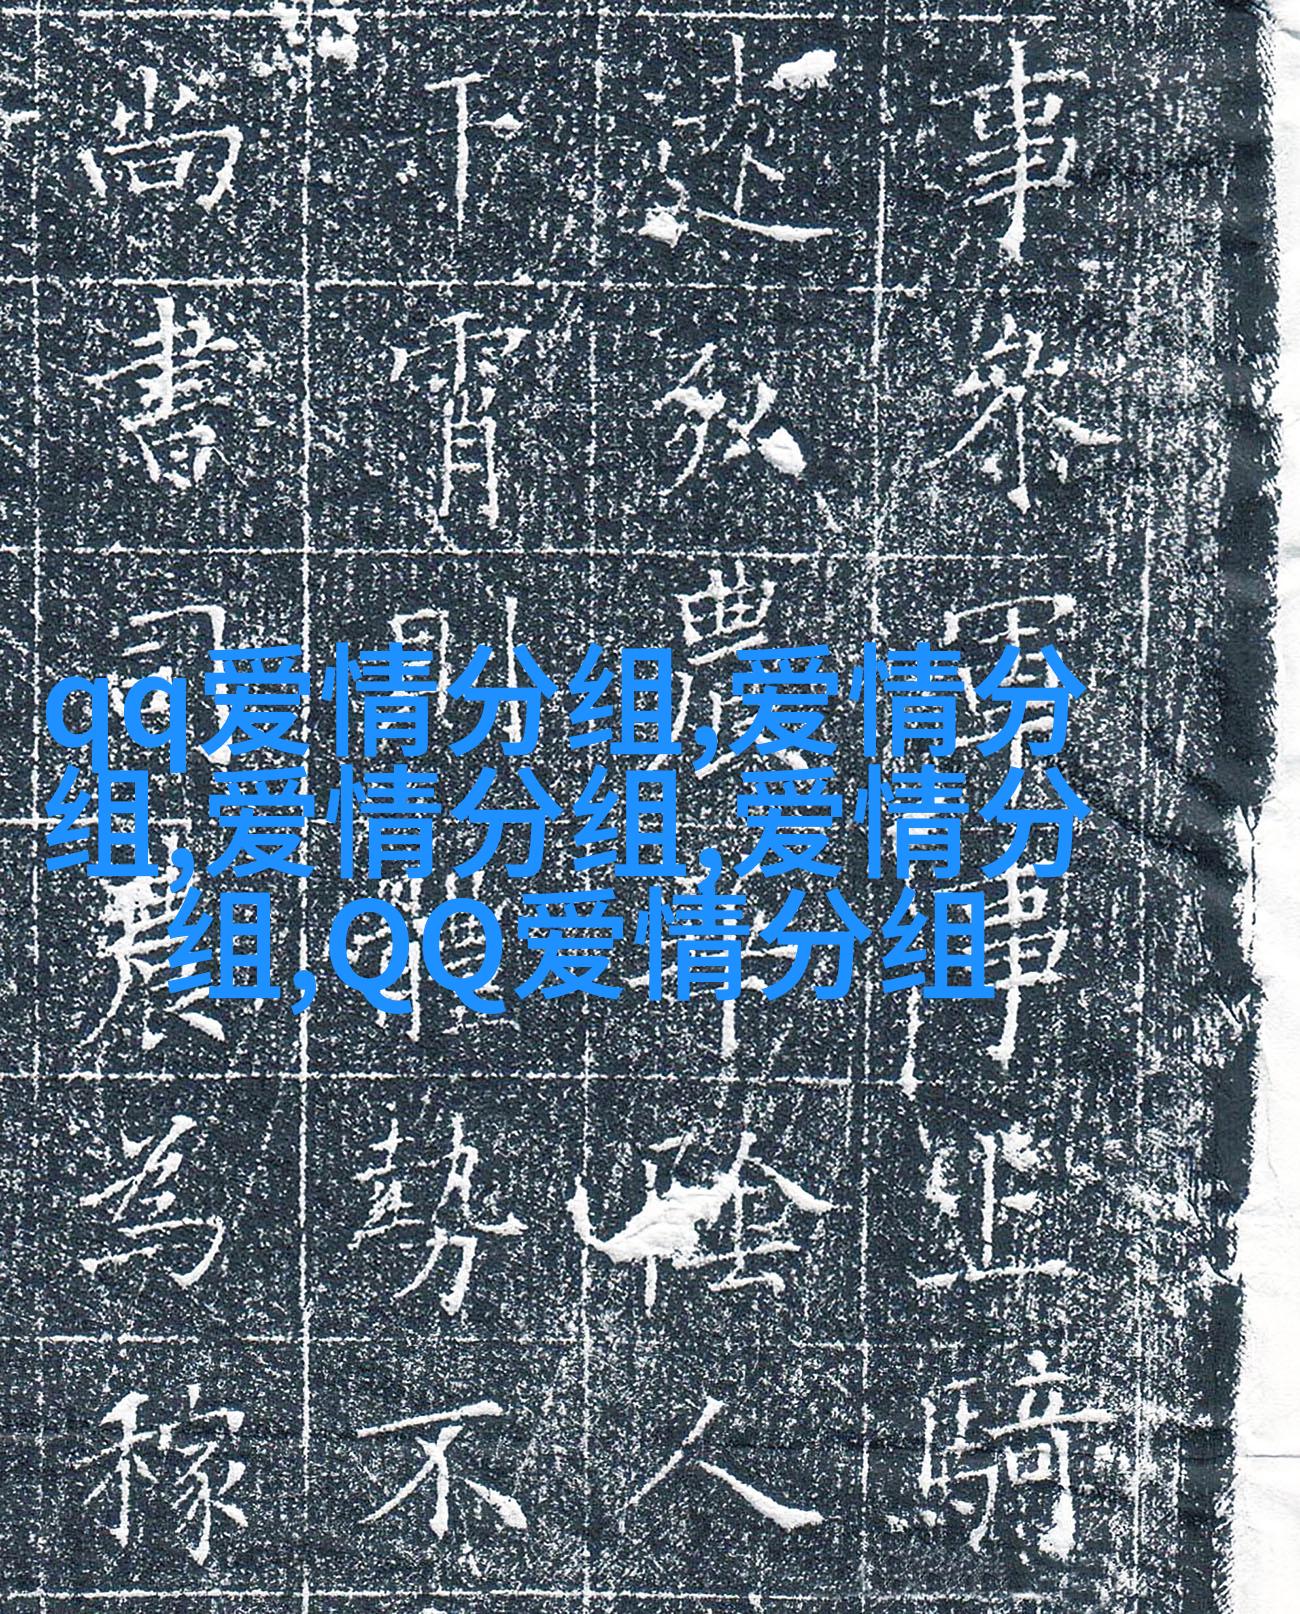 qq爱情分组,爱情分
组,爱情分组,爱情分
组,QQ爱情分组
事參軍事騎
弘農華陰人
下霄則勢不
尚書司農為稼